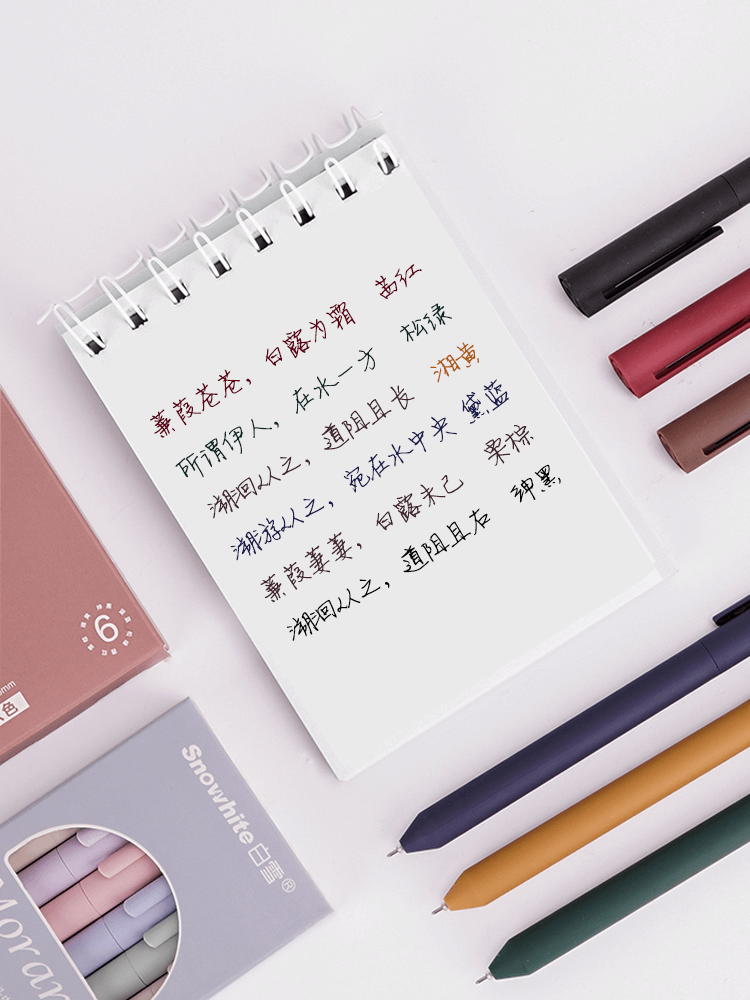 蒹葭苍苍，白露为霜 茜红
所谓伊人，在水一方 松绿
溯洄从之，道阻且长 湘黄
溯游从之，宛在水中央 黛蓝
蒹葭萋萋，白露未已 栗棕
溯洄从之，道阻且右 绅黑
6
mm
色
Snowhite白雪®
Moran